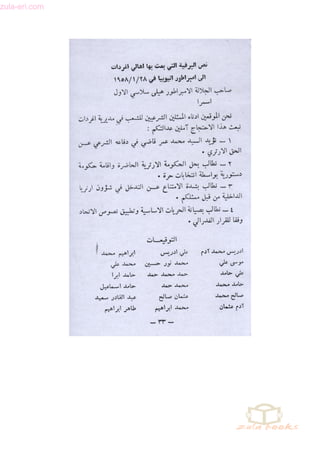 zula-eri.com
نص البرقية التي بعث بها اهالي اغردات
الى امبراطور اثيوبيا في ١٩٥٨/١/٢٨
صاحب الجلالة الامبراطور هيلى سلاسي الاول
اسمرا
نحن الموقعين ادناه الممثلين الشرعيين للشعب في مديرية اغردات
نبعث هذا الاحتجاج آملين عدالتكم :
١ — نؤيد السيد محمد عمر قاضي في دفاعه الشرعي عن
الحق الارتري .
٢ — نطالب بحل الحكومة الارترية الحاضرة واقامة حكومة
دستورية بواسطة انتخابات حرة .
٣ — نطالب بشدة الامتناع عن التدخل في شؤون ارتريا
الداخلية من قبل ممثلكم .
٤ — نطالب بصيانة الحريات الاساسية وتطبيق نصوص الاتحاد
وفقا للقرار الفدرالي .
التوقيعات
ادريس محمد آدم علي ادريس ابراهيم محمد
موسى علي محمد نور حسين محمد علي
علي حامد حمد محمد حمد حامد ابرا
حامد محمد محمد حمد حامد اسماعيل
صالح محمد عثمان صالح عبد القادر سعيد
آدم عثمان محمد ابراهيم طاهر ابراهيم
— ٣٣ —
zula books